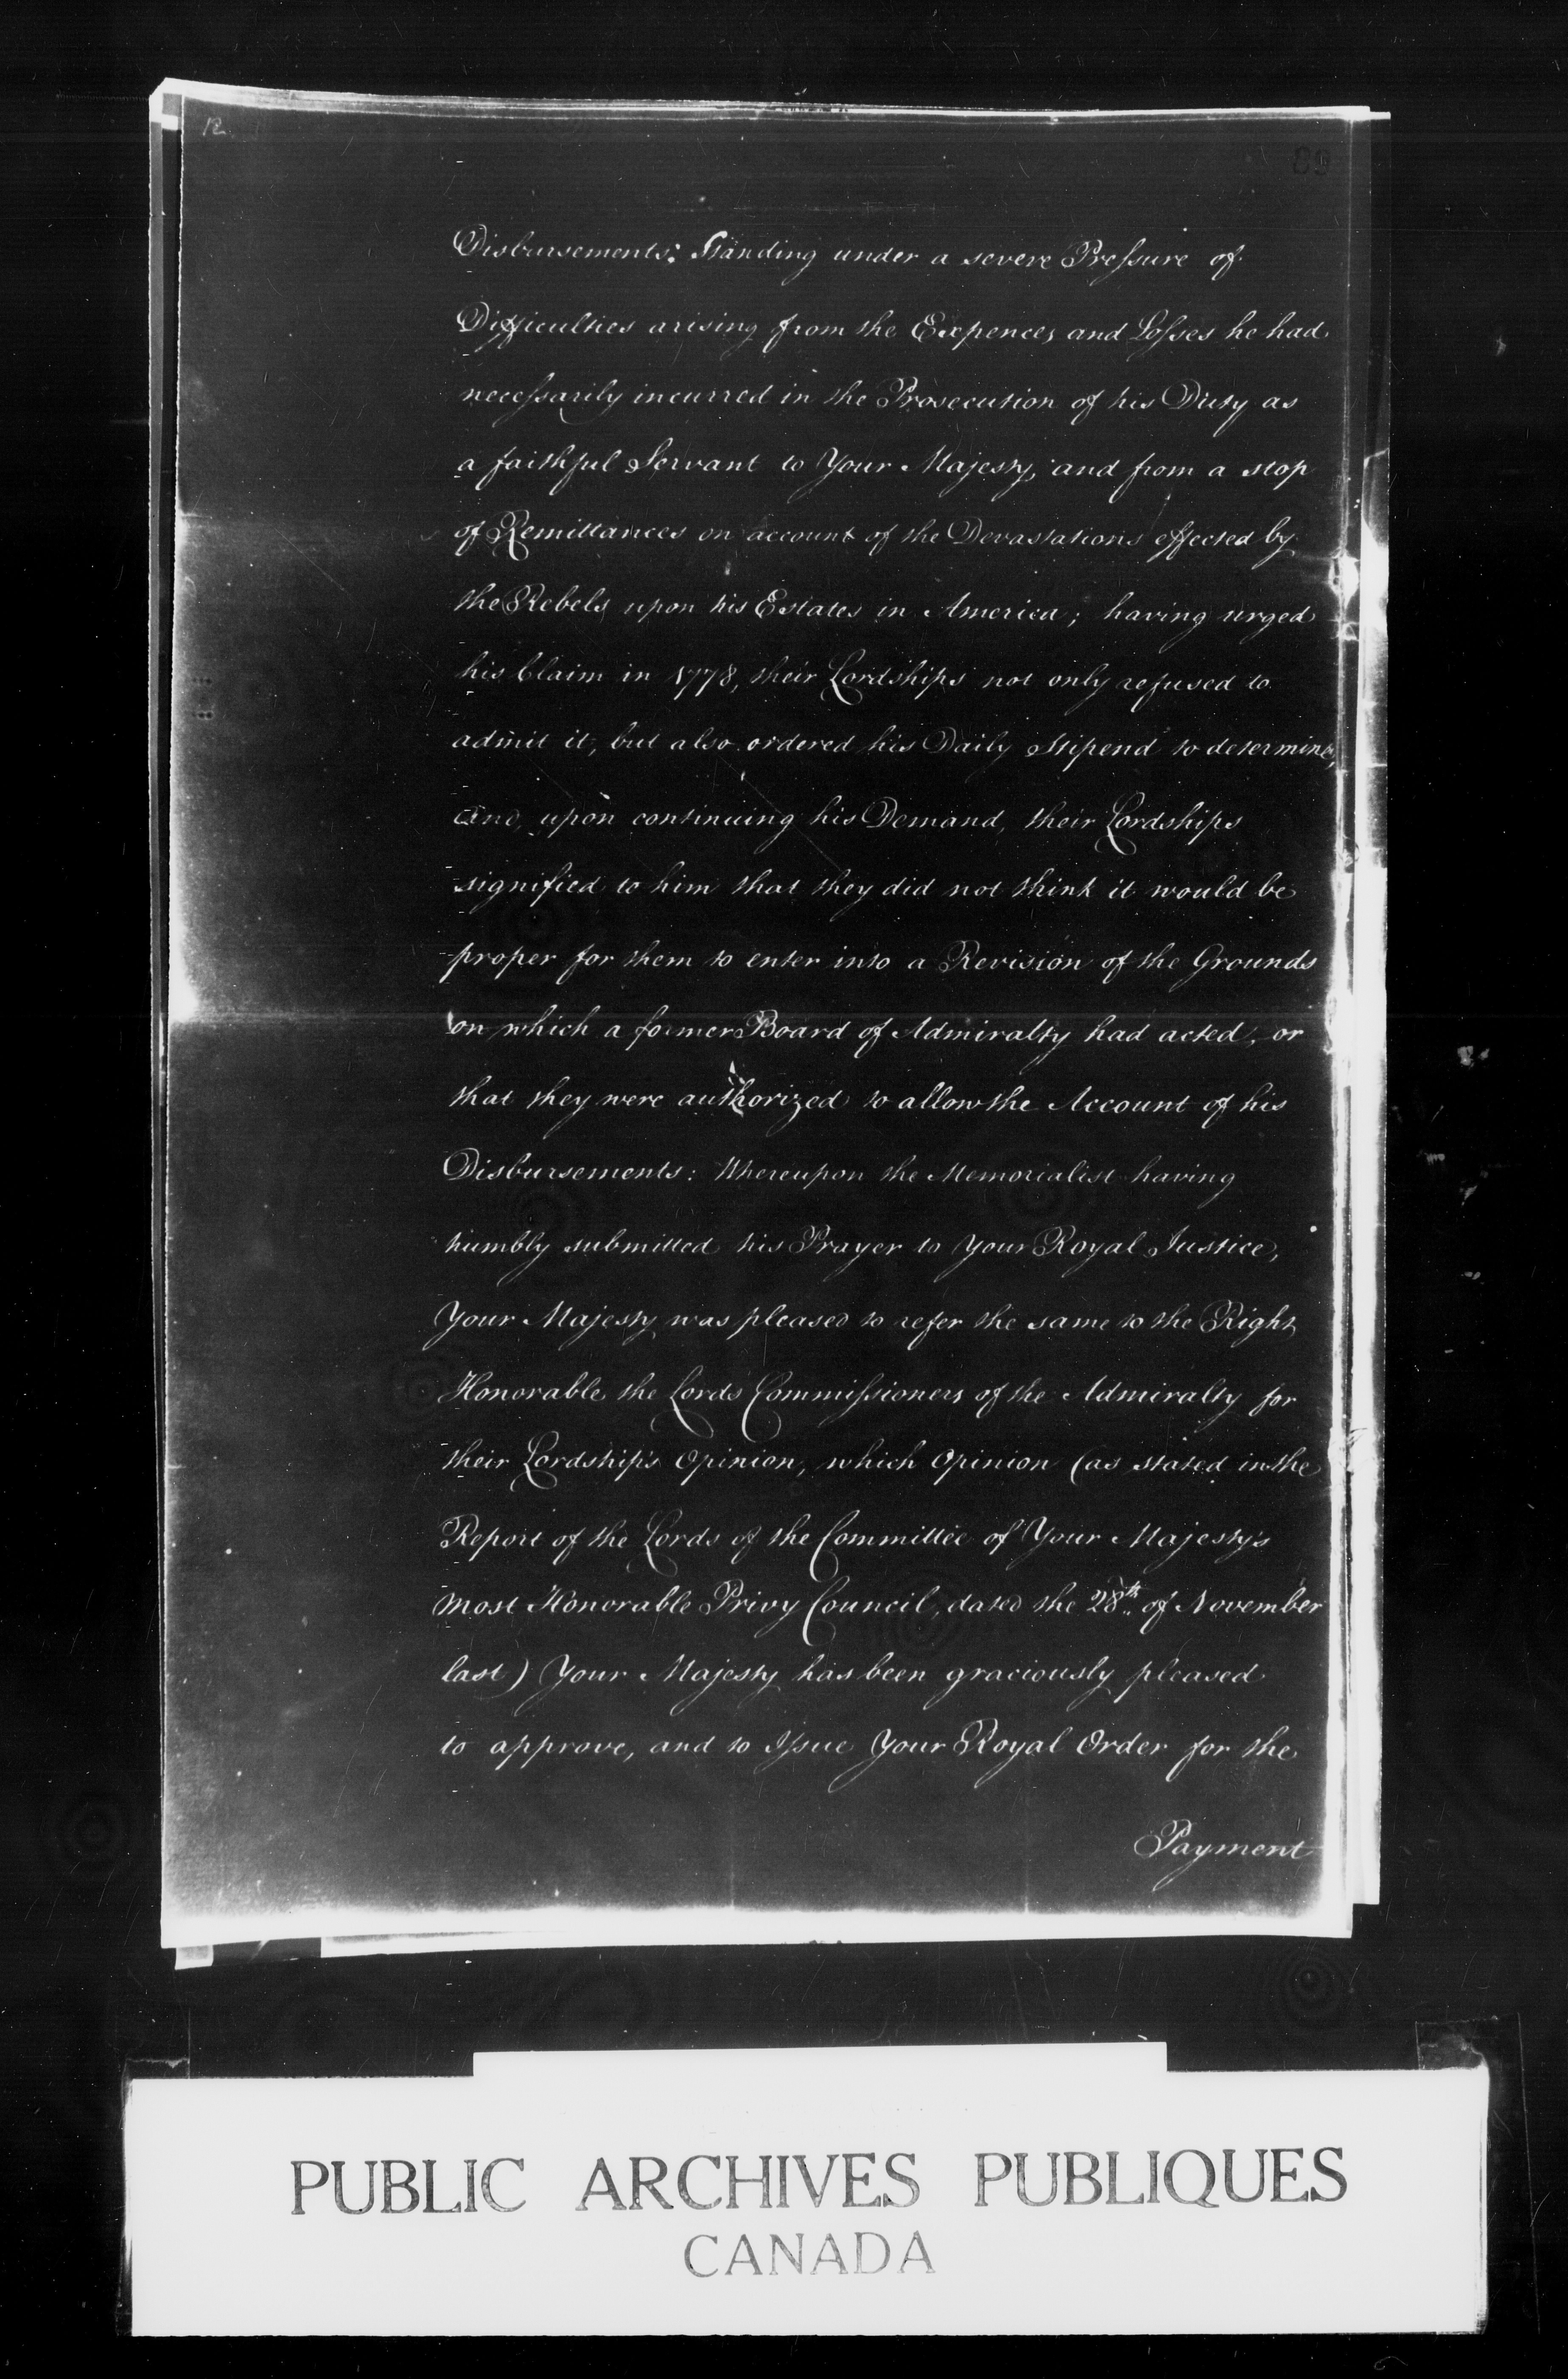 12
89
Disbursements: Standing under a severe Pressure of
Difficulties arising from the Expences and Losses he had
necessarily incurred in the Prosecution of his Duty as
a faithful Servant to Your Majesty, and from a stop
of Remittances on account of the Devastations effected by
the Rebels upon his Estates in America; having urged
his Claim in 1778, their Lordships not only refused to
admit it, but also ordered his Daily Stipend to determine,
and, upon continuing his Demand, their Lordships
signified to him that they did not think it would be
proper for them to enter into a Revision of the Grounds
on which a former Board of Admiralty had acted, or
that they were authorized to allow the Account of his
Disbursements: Whereupon the Memorialist having
humbly submitted his Prayer to Your Royal Justice,
Your Majesty was pleased to refer the same to the Right
Honorable the Lords Commissioners of the Admiralty for
their Lordship's Opinion, which Opinion (as stated in the
Report of the Lords of the Committee of Your Majesty's
most Honorable Privy Council, dated the 28th of November
last) Your Majesty has been graciously pleased
to approve, and to Issue Your Royal Order for the
Payment
PUBLIC ARCHIVES PUBLIQUES
CANADA